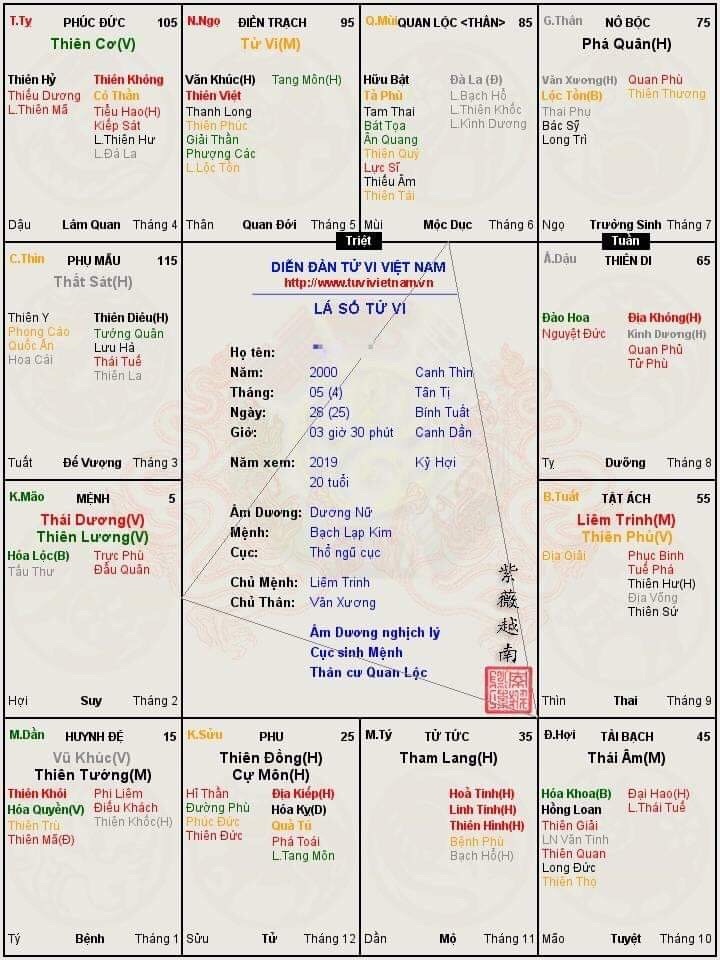 T.Tỵ PHÚC ĐỨC 105
Thiên Cơ(V)
Thiên Hỷ Thiên Không
Thiếu Dương Cô Thần
L.Thiên Mã Tiểu Hao(H)
Kiếp Sát
L.Thiên Hư
L.Đà La
Dậu Lâm Quan Tháng 4
N.Ngọ ĐIỀN TRẠCH 95
Tử Vi(M)
Văn Khúc(H) Tang Môn(H)
Thiên Việt
Thanh Long
Thiên Phúc
Giải Thần
Phượng Các
L.Lộc Tồn
Thân Quan Đới Tháng 5
Q.Mùi QUAN LỘC <THÂN> 85
Hữu Bật Đà La (Đ)
Tả Phù L.Bạch Hổ
Tam Thai L.Thiên Khốc
Bát Tọa L.Kình Dương
Ân Quang
Thiên Quý
Lực Sĩ
Thiếu Âm
Thiên Tài
Mùi Mộc Dục Tháng 6
G.Thân NÔ BỘC 75
Phá Quân(H)
Văn Xương(H) Quan Phù
Lộc Tồn(B) Thiên Thương
Thai Phụ
Bác Sỹ
Long Trì
Ngọ Trường Sinh Tháng 7
Triệt
Tuần
C.Thìn PHỤ MẪU 115
Thất Sát(H)
Thiên Y Thiên Diêu(H)
Phong Cáo Tướng Quân
Quốc Ấn Lưu Hà
Hoa Cái Thái Tuế
Thiên La
Tuất Đế Vượng Tháng 3
DIỄN ĐÀN TỬ VI VIỆT NAM
http://www.tuvivietnam.vn
LÁ SỐ TỬ VI
Họ tên:
Năm: 2000 Canh Thìn
Tháng: 05 (4) Tân Tị
Ngày: 28 (25) Bính Tuất
Giờ: 03 giờ 30 phút Canh Dần
Năm xem: 2019 Kỷ Hợi
20 tuổi
Âm Dương: Dương Nữ
Mệnh: Bạch Lạp Kim
Cục: Thổ ngũ cục
Chủ Mệnh: Liêm Trinh
Chủ Thân: Văn Xương
Âm Dương nghịch lý
Cục sinh Mệnh
Thân cư Quan Lộc
紫
薇
越
南
Ấ.Dậu THIÊN DI 65
Đào Hoa Địa Không(H)
Nguyệt Đức Kình Dương(H)
Quan Phủ
Tử Phù
Tỵ Dưỡng Tháng 8
K.Mão MỆNH 5
Thái Dương(V)
Thiên Lương(V)
Hóa Lộc(B) Trực Phù
Tấu Thư Đẩu Quân
Hợi Suy Tháng 2
B.Tuất TẬT ÁCH 55
Liêm Trinh(M)
Thiên Phủ(V)
Địa Giải Phục Binh
Tuế Phá
Thiên Hư(H)
Địa Võng
Thiên Sứ
Thìn Thai Tháng 9
M.Dần HUYNH ĐỆ 15
Vũ Khúc(V)
Thiên Tướng(M)
Thiên Khôi Phi Liêm
Hóa Quyền(V) Điếu Khách
Thiên Trù Thiên Khốc(H)
Thiên Mã(Đ)
Tý Bệnh Tháng 1
K.Sửu PHU 25
Thiên Đồng(H)
Cự Môn(H)
Hỉ Thần Địa Kiếp(H)
Đường Phù Hóa Kỵ(D)
Phúc Đức Quả Tú
Thiên Đức Phá Toái
L.Tang Môn
Sửu Tử Tháng 12
M.Tý TỬ TỨC 35
Tham Lang(H)
Hoả Tinh(H)
Linh Tinh(H)
Thiên Hình(H)
Bệnh Phù
Bạch Hổ(H)
Dần Mộ Tháng 11
Đ.Hợi TÀI BẠCH 45
Thái Âm(M)
Hóa Khoa(B) Đại Hao(H)
Hồng Loan L.Thái Tuế
Thiên Giải
LN Văn Tinh
Thiên Quan
Long Đức
Thiên Thọ
Mão Tuyệt Tháng 10